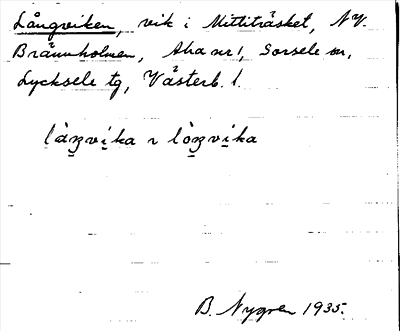 Långviken, vik i Mittiträsket, NV.
Brännholmen, Aha nr 1, Sorsele sn,
Lycksele tg, Västerb. l.
B. Nygren 1935.